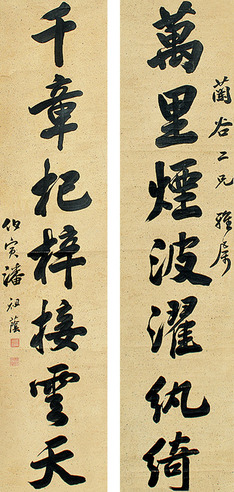 萬里煙波濯紈綺
蘭谷二兄雅属
千章杞梓接雲天
伯寅潘祖蔭